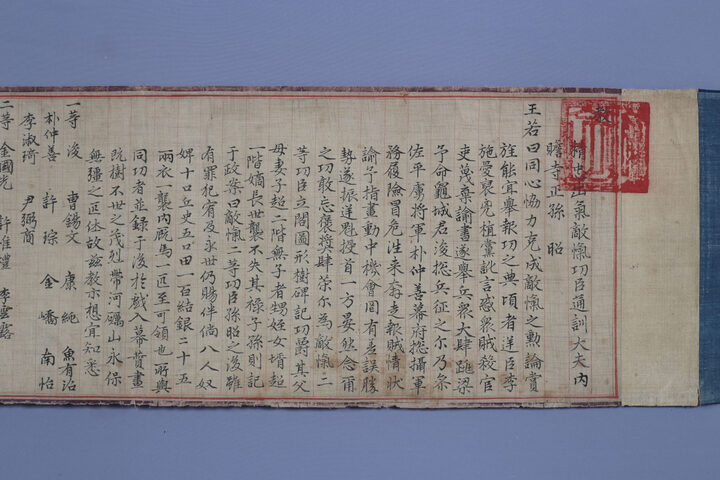 教
精忠出氣敵愾功臣通訓大夫內
贍寺正孫 昭
王若曰同心協力克成敵愾之勲論賞
旌能宜舉報功之典頃者逆臣李
施愛裒兇植黨訛言惑衆賊殺官
吏蔑棄諭書遂舉兵衆大肆跳梁
予命龜城君浚捴兵征之尔乃參
佐平虜將軍朴仲善幕府捴攝軍
務履險冒危徃來奔走報賊情狀
諭予指畫動中機會罔有差誤勝
勢遂振逆魁授首一方晏然念爾
之功敢忘褒奬肆策尔為敵愾二
等功臣立閣圖形樹碑記功爵其父
母妻子超二階無子者甥姪女壻超
一階嫡長世襲不失其祿子孫則記
于政案曰敵愾二等功臣孫昭之後雖
有罪犯宥及永世仍賜伴倘八人奴
婢十口丘史五口田一百結銀二十五
兩衣一襲內廐馬一匹至可領也所與
同功者並錄于後於戲入幕贊畫
旣樹不世之茂烈帶河礪山永保
無彊之匹休故茲敎示想宜知悉
一等 浚 曺錫文 康純 魚有沼
朴仲善 許琮 金嶠 南怡
李淑琦 尹弼商
二等 金國光 許惟禮 李雲露